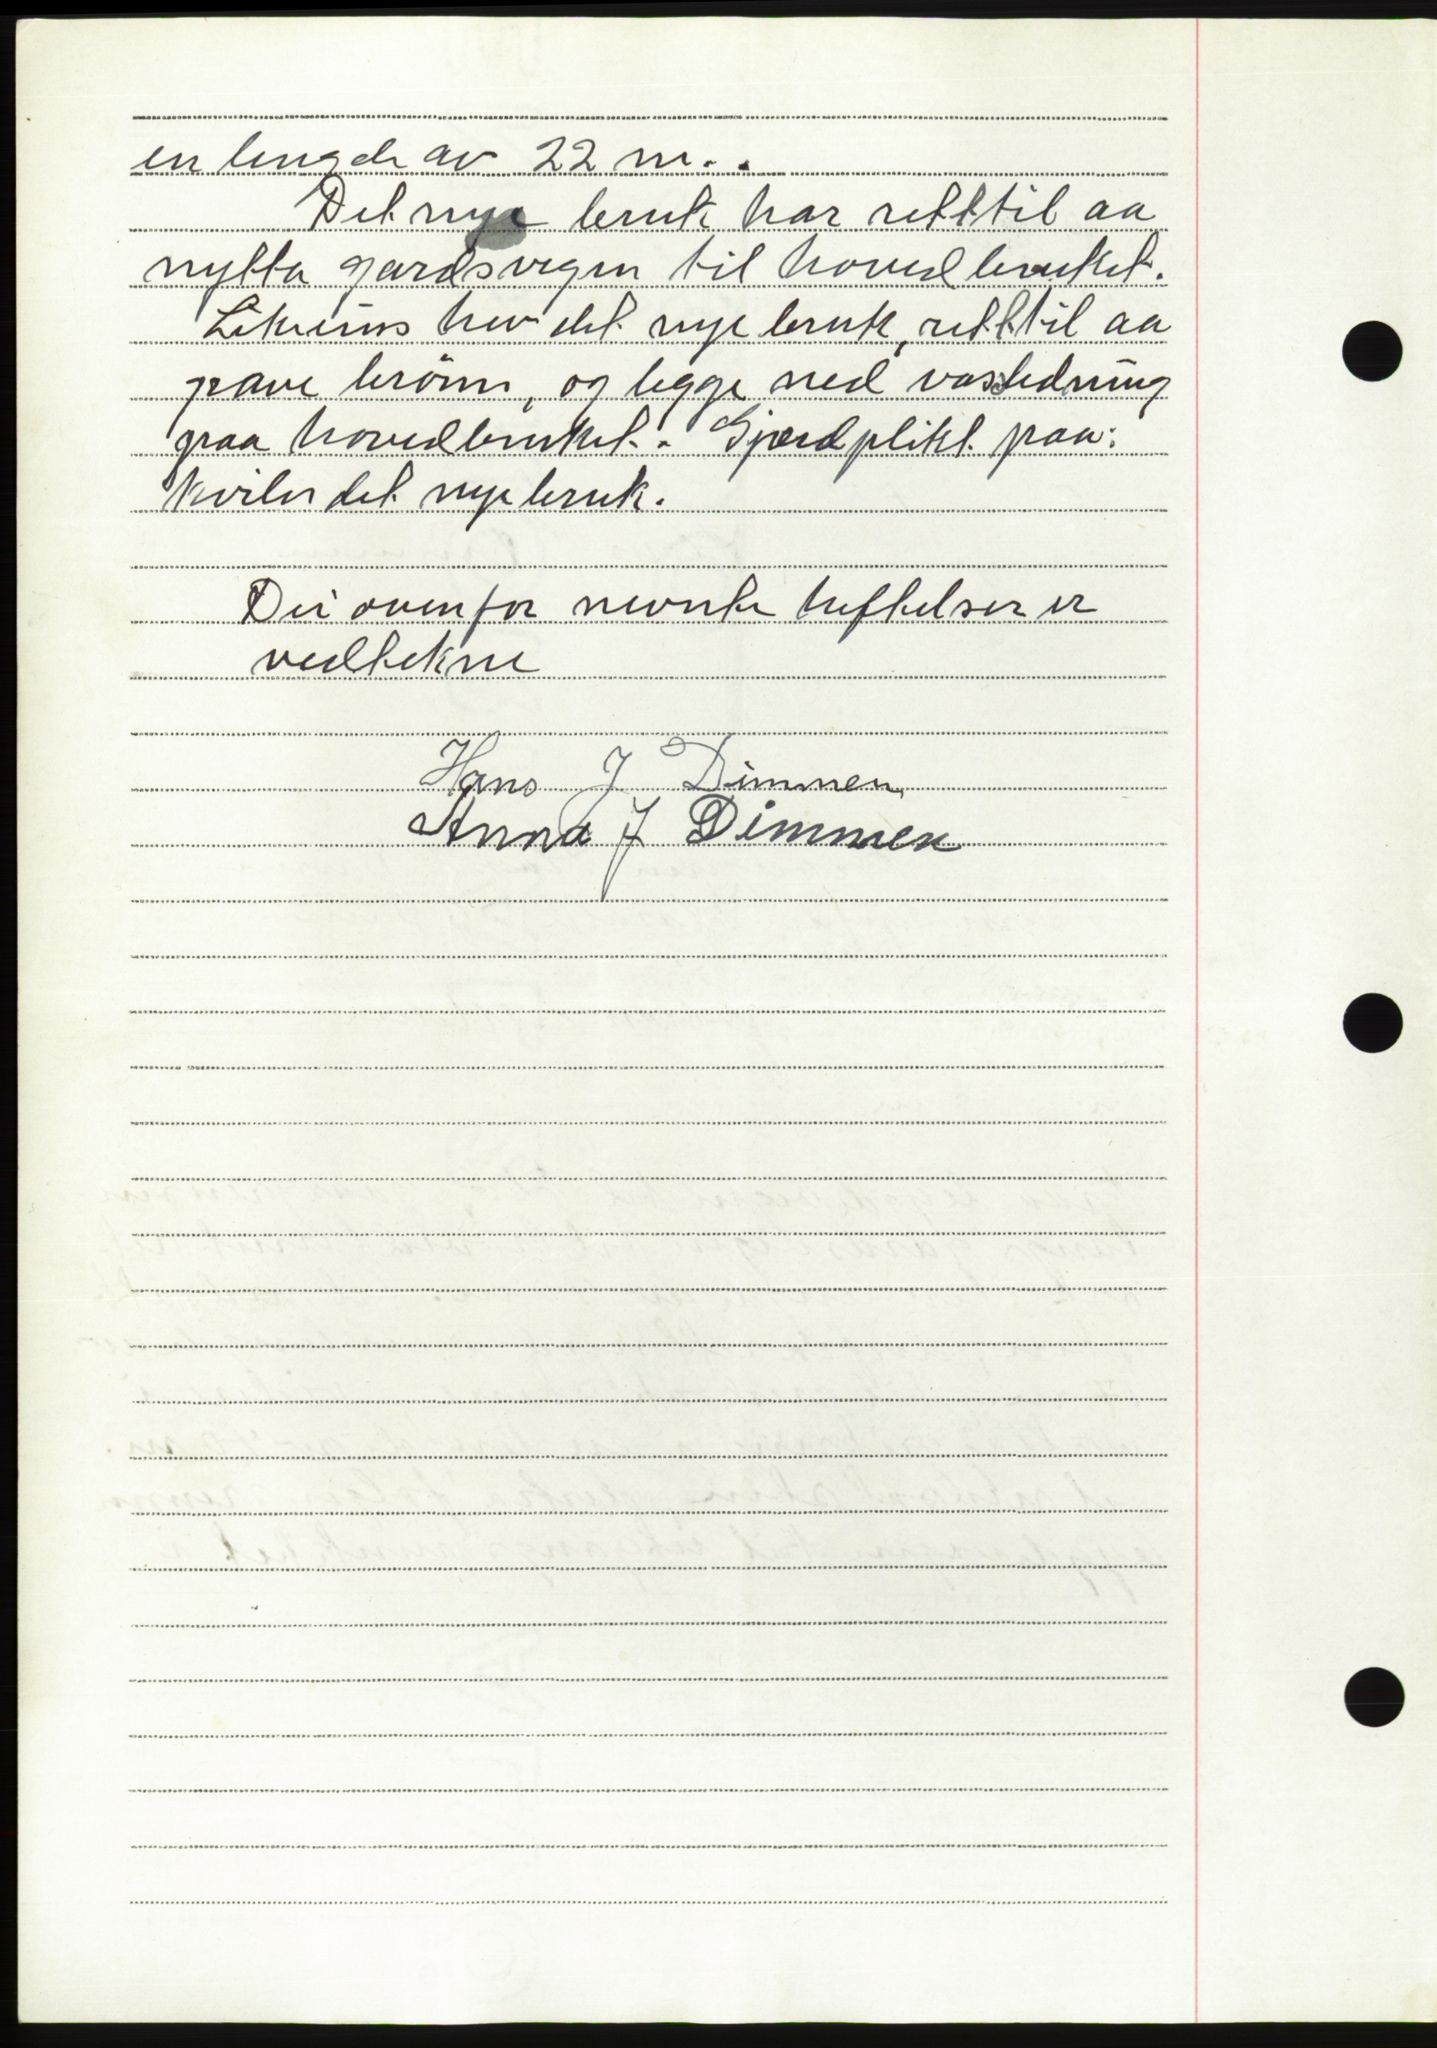 en lengde av 22 m..
Det nye bruk har rett til aa
nytta gardsvegen til hovedbruket.
Likeeins hev det nye bruk, rett til aa
grave brönn, og legge ned vassledning
paa hovedbruket. Gjærdplikt paa:
kviler det nye bruk.
Dei ovenfor nevnte heftelser er
vedtekne
Hans J Dimmen
Anna J Dimmen